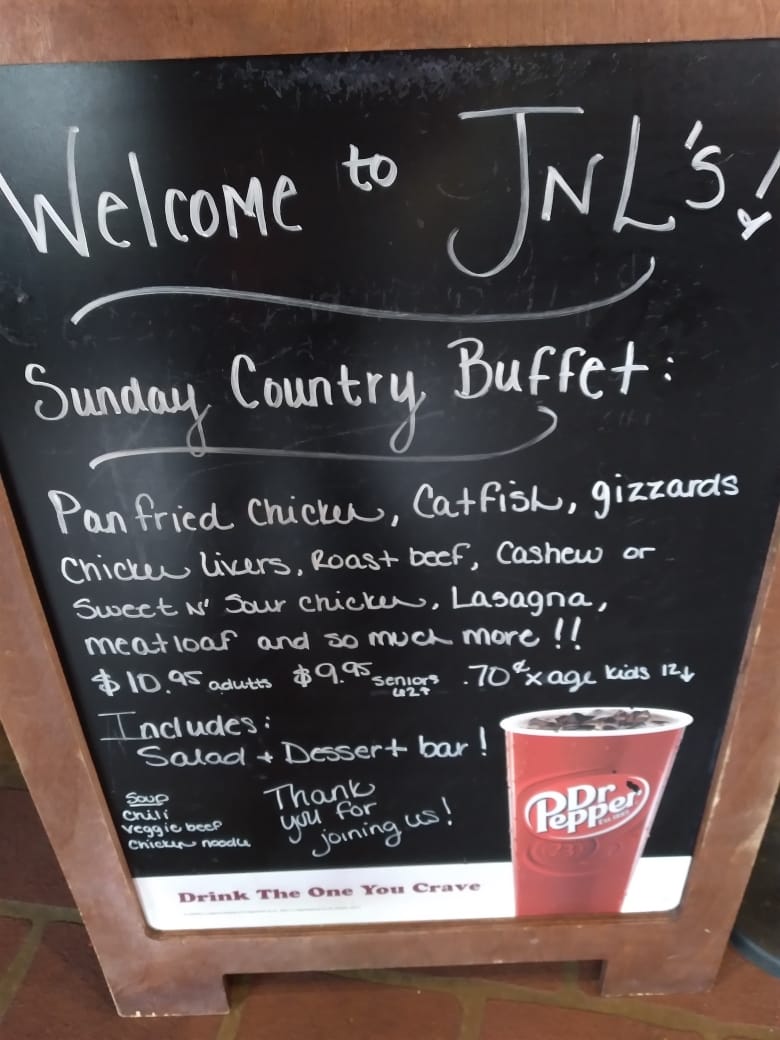 Welcome to JNL's!
Sunday Country Buffet:
Pan fried Chicken, Catfish, gizzards
Chicken livers, Roast beef, Cashew or
Sweet N' Sour chicken, Lasagna,
meatloaf and so much more!!
$10.95 adults $9.95 seniors 62+ .70¢ x age kids 12↓
Includes:
Salad + Dessert bar!
Soup
Chili
Veggie beef
Chicken noodle
Thank
you for
joining us!
Dr Pepper
Drink The One You Crave